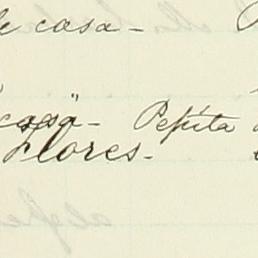 de casa-
"casa"- Pepita
Flores-